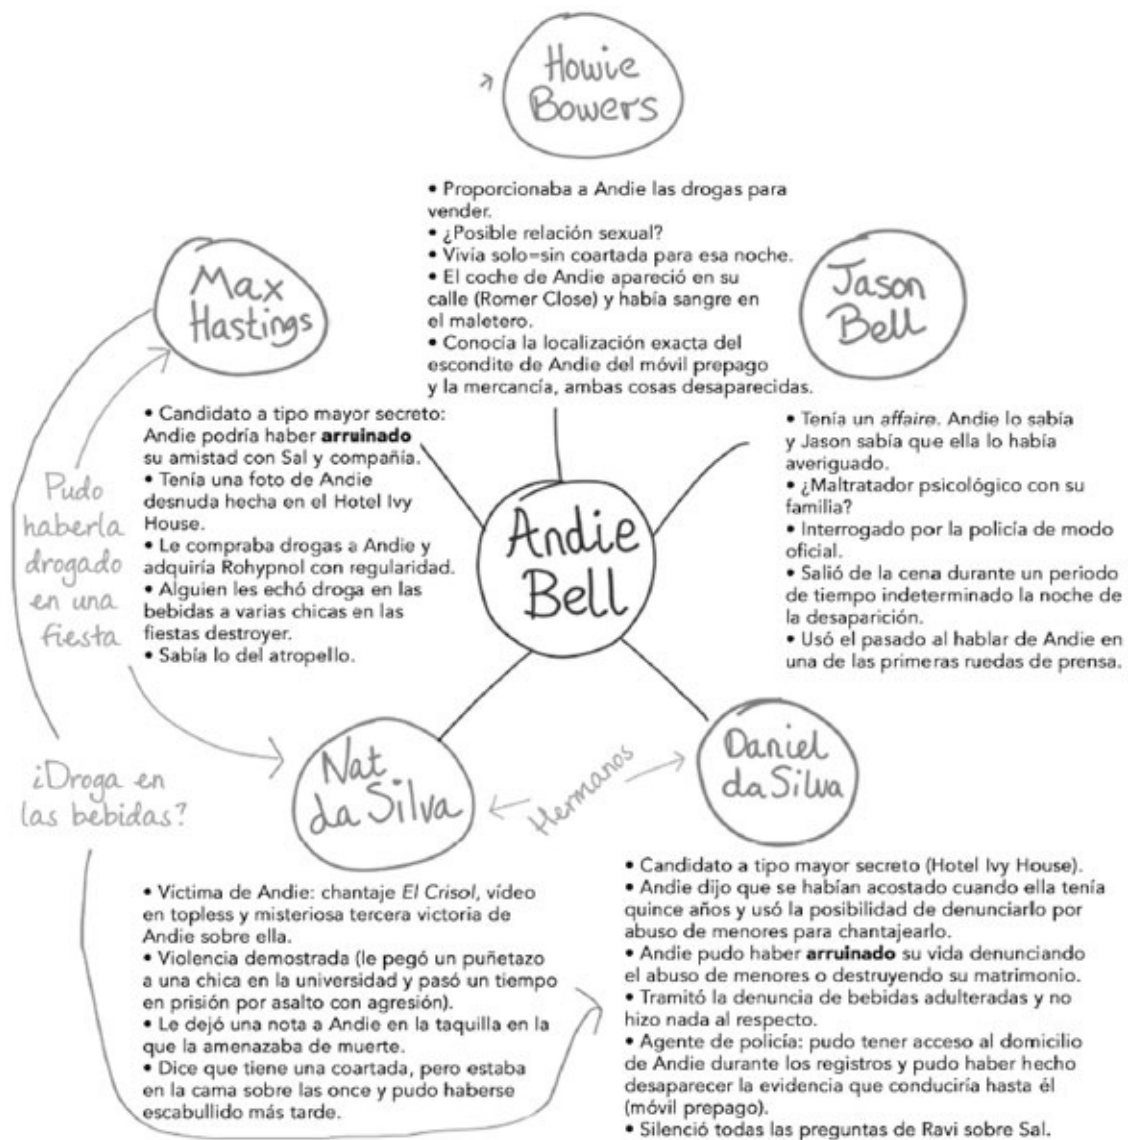 Howie
Bowers
• Proporcionaba a Andie las drogas para
vender.
• ¿Posible relación sexual?
• Vivía solo=sin coartada para esa noche.
• El coche de Andie apareció en su
calle (Romer Close) y había sangre en
el maletero.
• Conocía la localización exacta del
escondite de Andie del móvil prepago
y la mercancía, ambas cosas desaparecidas.
Max
Hastings
• Candidato a tipo mayor secreto:
Andie podría haber arruinado
su amistad con Sal y compañía.
• Tenía una foto de Andie
desnuda hecha en el Hotel Ivy
House.
• Le compraba drogas a Andie y
adquiría Rohypnol con regularidad.
• Alguien les echó droga en las
bebidas a varias chicas en las
fiestas destroyer.
• Sabía lo del atropello.
Jason
Bell
• Tenía un affaire. Andie lo sabía
y Jason sabía que ella lo había
averiguado.
• ¿Maltratador psicológico con su
familia?
• Interrogado por la policía de modo
oficial.
• Salió de la cena durante un periodo
de tiempo indeterminado la noche de
la desaparición.
• Usó el pasado al hablar de Andie en
una de las primeras ruedas de prensa.
Andie
Bell
Pudo
haberla
drogado
en una
fiesta
¿Droga en
las bebidas?
Nat
da Silva
Hermanos
Daniel
da Silva
• Víctima de Andie: chantaje El Crisol, vídeo
en topless y misteriosa tercera victoria de
Andie sobre ella.
• Violencia demostrada (le pegó un puñetazo
a una chica en la universidad y pasó un tiempo
en prisión por asalto con agresión).
• Le dejó una nota a Andie en la taquilla en la
que la amenazaba de muerte.
• Dice que tiene una coartada, pero estaba
en la cama sobre las once y pudo haberse
escabullido más tarde.
• Candidato a tipo mayor secreto (Hotel Ivy House).
• Andie dijo que se habían acostado cuando ella tenía
quince años y usó la posibilidad de denunciarlo por
abuso de menores para chantajearlo.
• Andie pudo haber arruinado su vida denunciando
el abuso de menores o destruyendo su matrimonio.
• Tramitó la denuncia de bebidas adulteradas y no
hizo nada al respecto.
• Agente de policía: pudo tener acceso al domicilio
de Andie durante los registros y pudo haber hecho
desaparecer la evidencia que conduciría hasta él
(móvil prepago).
• Silenció todas las preguntas de Ravi sobre Sal.